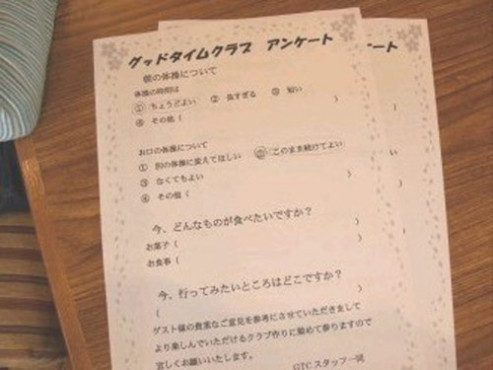 グッドタイムクラブ アンケート
朝の体操について
体操の時間は
① ちょうどよい ② 長すぎる ③ 短い
④ その他( )
お口の体操について
① 別の体操に変えてほしい ② このまま続けてよい
③ なくてもよい
④ その他( )
今、どんなものが食べたいですか?
お菓子( )
お食事( )
今、行ってみたいところはどこですか?
( )
ゲスト様の貴重なご意見を参考にさせていただきまして
より楽しんでいただけるクラブ作りに努めて参りますので
宜しくお願いいたします。
GTCスタッフ一同
アンケート